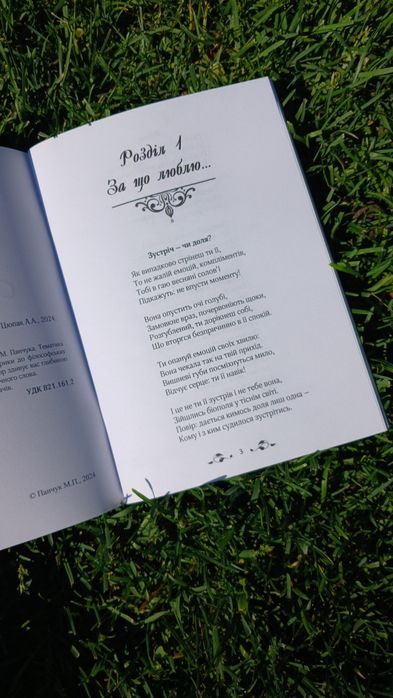 Шопак Л.А., 2024
М. Панчука. Тематика
лірики до філософських
тор здивує вас глибиною
ічного слова.
УДК 821.161.2
© Панчук М.П., 2024
Розділ 1
За що люблю...
Зустріч – чи доля?
Як випадково стрінеш ти її,
То не жалій емоцій, компліментів,
Тобі в гаю весняні солов'ї
Підкажуть: не впусти моменту!
Вона опустить очі голубі,
Замовкне враз, почервоніють щоки,
Розгублений, ти дорікнеш собі,
Що вторгся безпричинно в її спокій.
Ти опануй емоцій своїх хвилю:
Вона чекала так на твій прихід.
Вишневі губи посміхнуться мило,
Відчує серце: ти її навік!
І це не ти її зустрів і не тебе вона,
Зійшлись біополя у тіснім світі.
Повір: дається кимось доля лиш одна –
Кому і з ким судилося зустрітись.
3